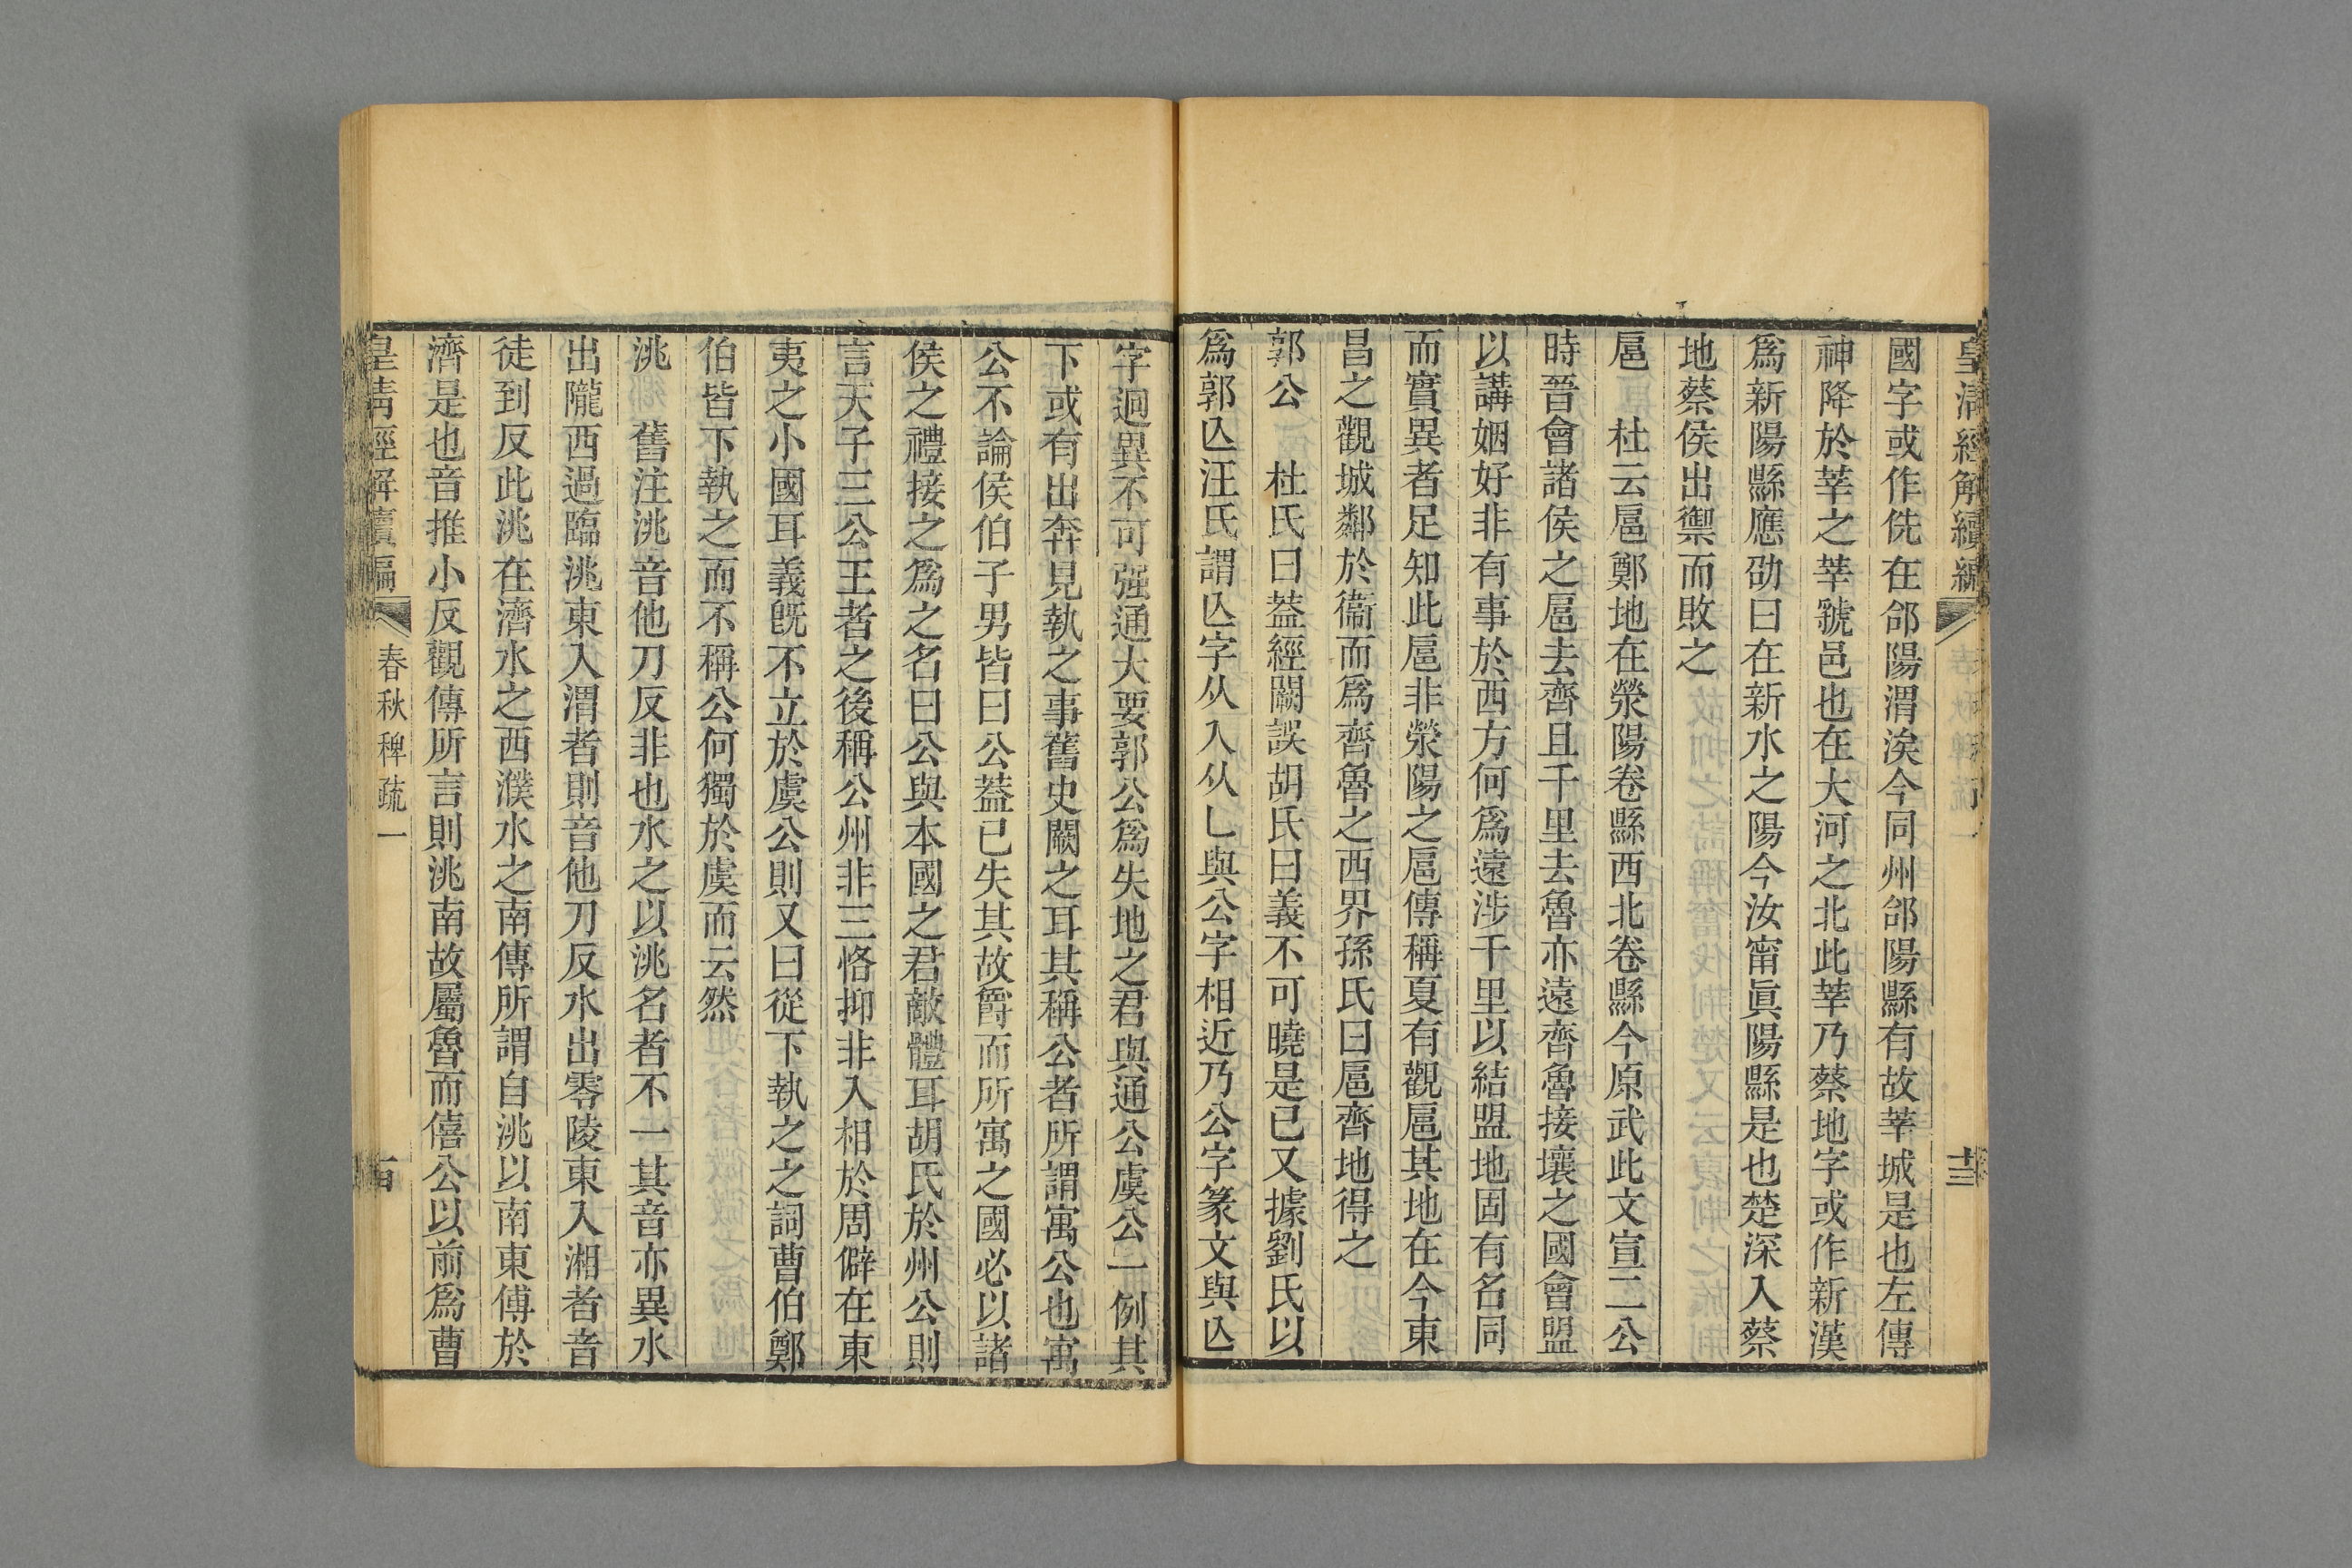 皇清經解續編
十三
國字或作侁在郃陽渭涘今同州郃陽縣有故莘城是也左傳
神降於莘之莘虢邑也在大河之北此莘乃蔡地字或作新漢
爲新陽縣應劭曰在新水之陽今汝甯眞陽縣是也楚深入蔡
地蔡侯出禦而敗之
扈　杜云扈鄭地在滎陽卷縣西北卷縣今原武此文宣二公
時晉會諸侯之扈去齊且千里去魯亦遠齊魯接壤之國會盟
以講姻好非有事於西方何爲遠涉千里以結盟地固有名同
而實異者足知此扈非滎陽之扈傳稱夏有觀扈其地在今東
昌之觀城鄰於衞而爲齊魯之西界孫氏曰扈齊地得之
郭公　杜氏曰葢經闕誤胡氏曰義不可曉是已又據劉氏以
爲郭亾汪氏謂亾字从入从乚與公字相近乃公字篆文與亾
字迥異不可强通大要郭公爲失地之君與通公虞公一例其
下或有出奔見執之事舊史闕之耳其稱公者所謂寓公也寓
公不論侯伯子男皆曰公葢已失其故爵而所寓之國必以諸
侯之禮接之爲之名曰公與本國之君敵體耳胡氏於州公則
言天子三公王者之後稱公州非三恪抑非入相於周僻在東
夷之小國耳義旣不立於虞公則又曰從下執之之詞曹伯鄭
伯皆下執之而不稱公何獨於虞而云然
洮　舊注洮音他刀反非也水之以洮名者不一其音亦異水
出隴西過臨洮東入渭者則音他刀反水出零陵東入湘者音
徒到反此洮在濟水之西濮水之南傳所謂自洮以南東傅於
濟是也音推小反觀傳所言則洮南故屬魯而僖公以前爲曹
皇清經解續編
春秋稗疏一